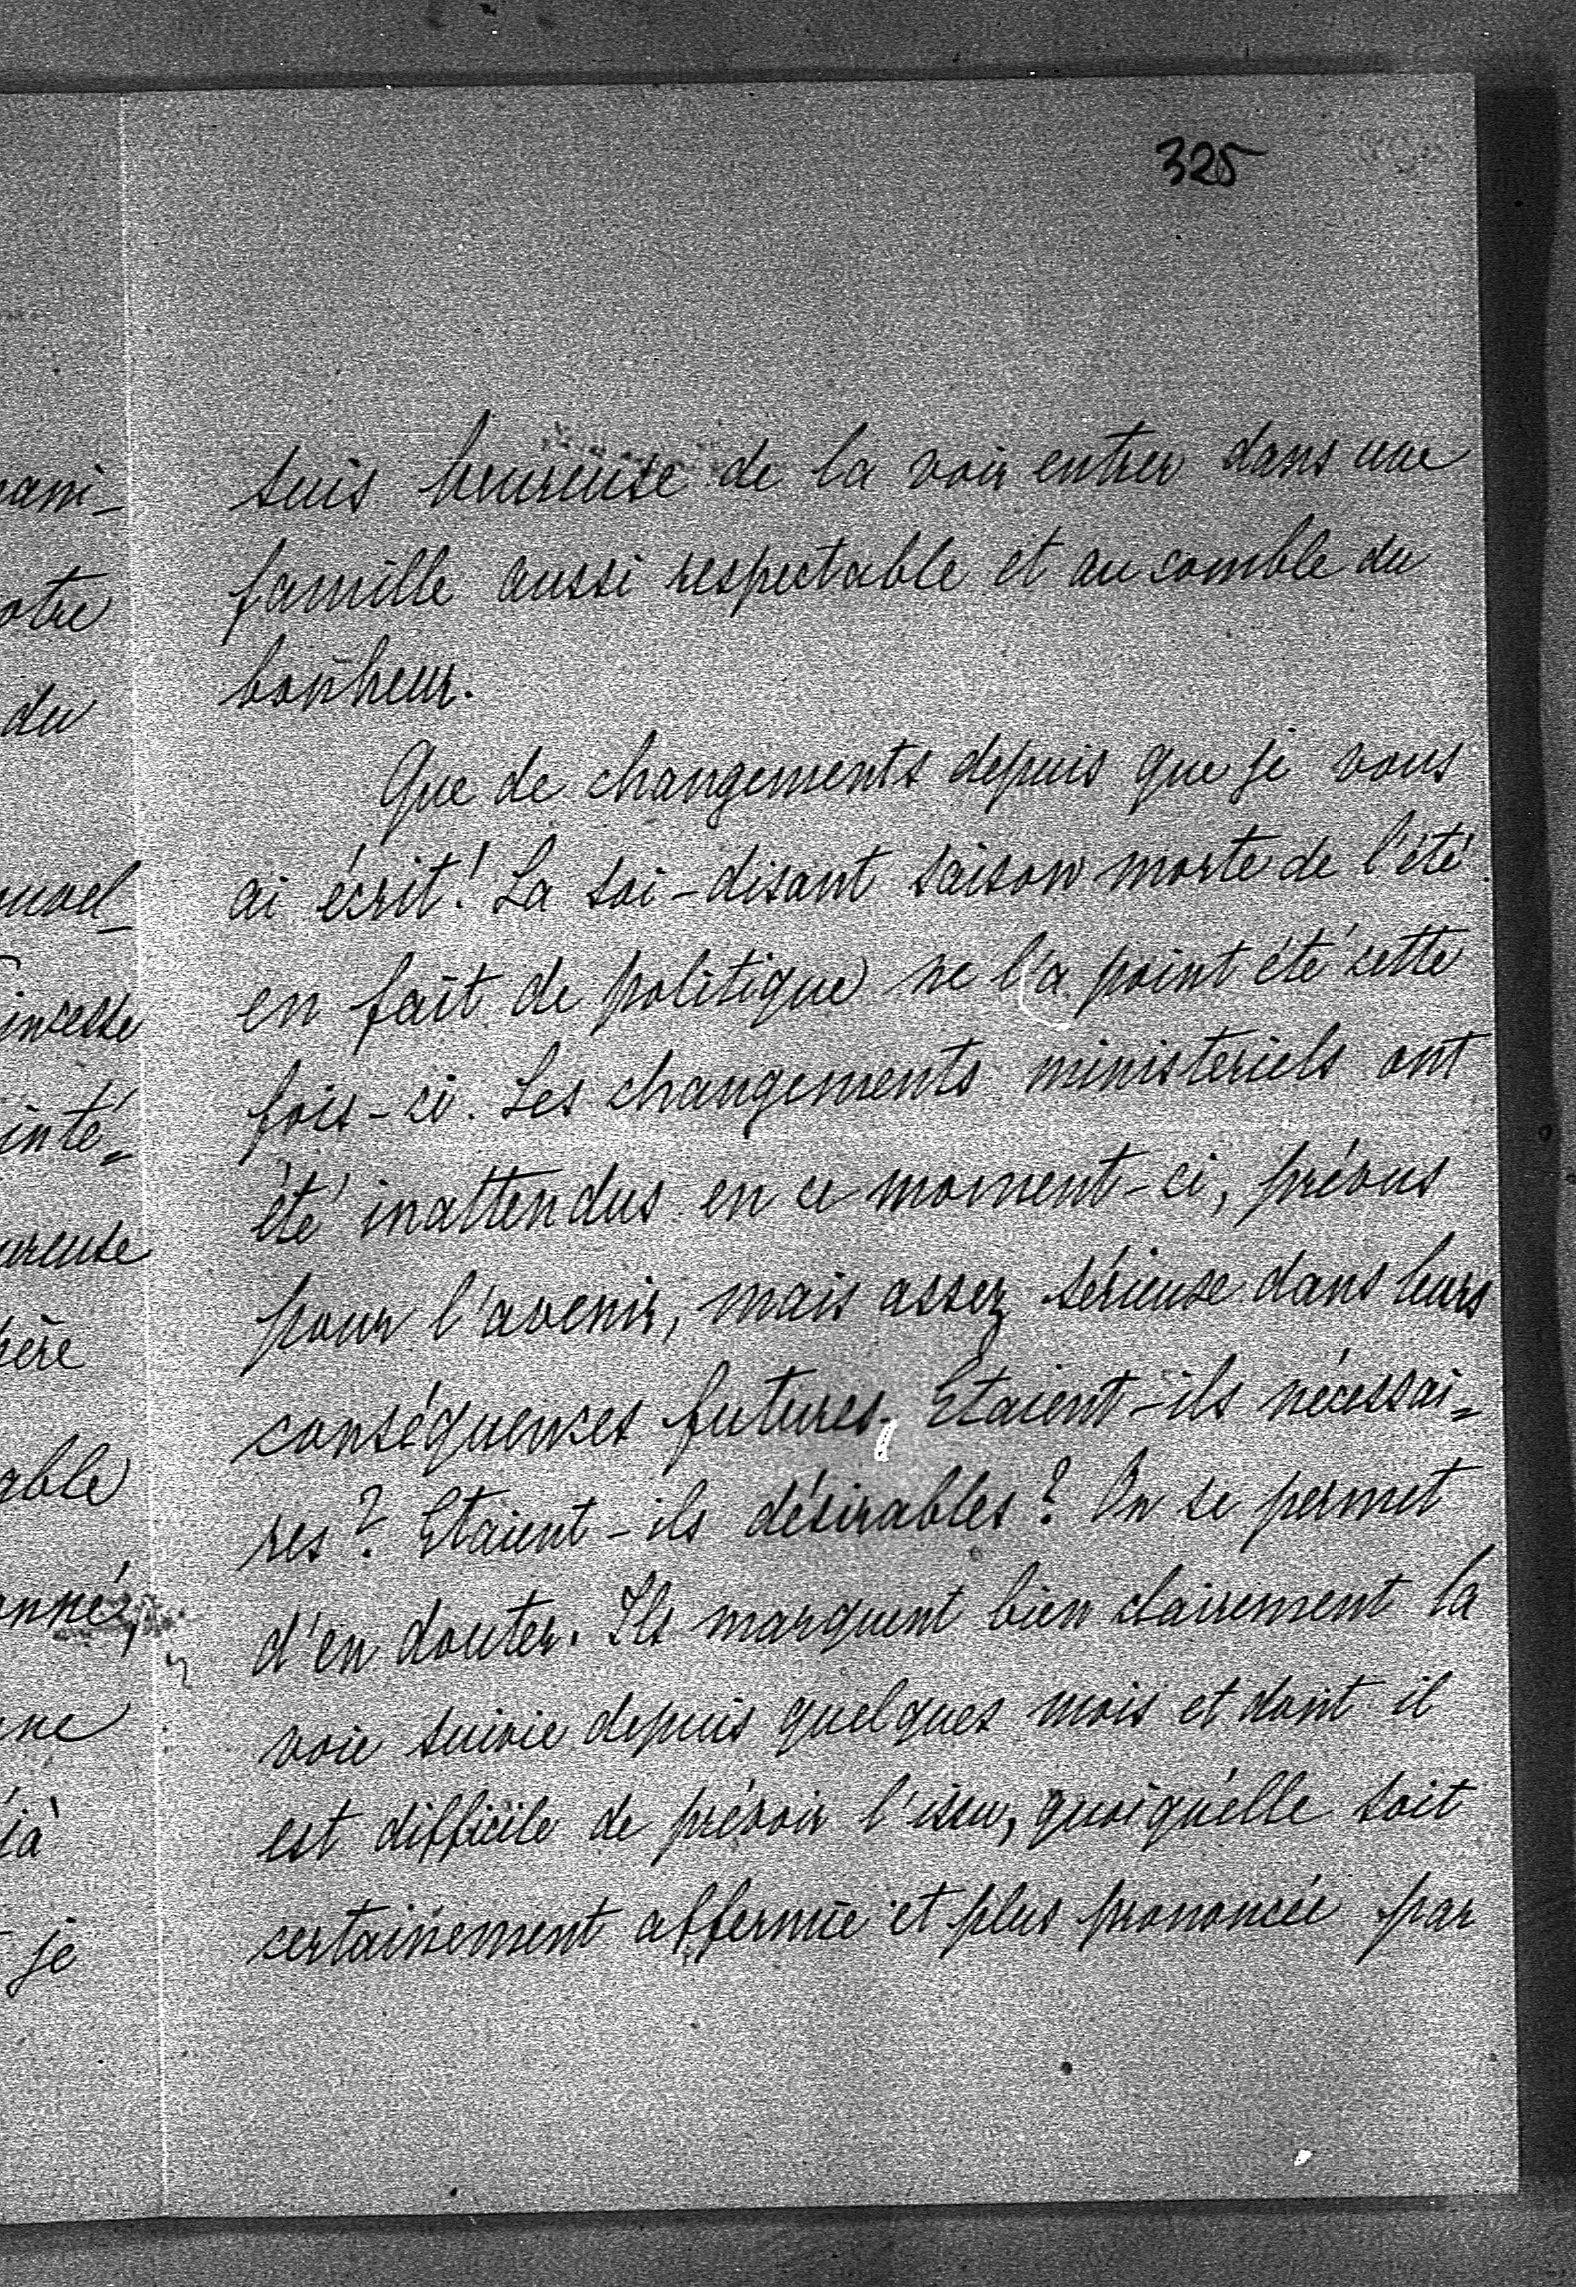 325
suis heureuse de la voir entrer dans une
famille aussi respectable et au comble du
bonheur.
Que de changements depuis que je vous
ai écrit! La soi-disant saison morte de l'été
en fait de politique ne l'a point été cette
fois-ci. Les changements ministeriels ont
été inattendus en ce moment-ci, prévus
pour l'avenir, mais assez sérieuse dans leurs
conséquences futures. Etaient-ils nécessai=
res? Etaient-ils désirables? On se permet
d'en douter. Ils marquent bien clairement la
voie suivie depuis quelques mois et dont il
est difficile de prévoir l'issu, quoiqu'elle soit
certainement affermie et plus prononcée par